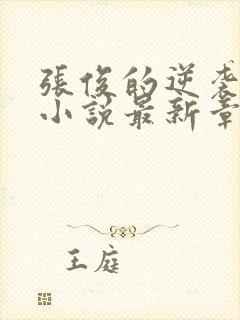 張俊的逆袭
小說最新章
王庭